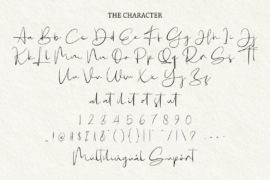 THE CHARACTER
Aa Bb Cc Dd Ee Ff Gg Hh Ii Jj
Kk Ll Mm Nn Oo Pp Qq Rr Ss Tt
Uu Vv Ww Xx Yy Zz
al at il it ot st ut
1 2 3 4 5 6 7 8 9 0
Multilingual Support